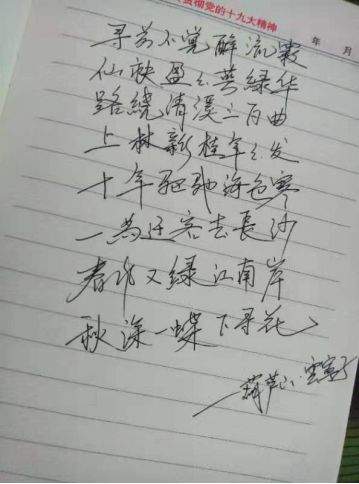 贯彻党的十九大精神
年 月
寻芳不覚醉流霞
仙袂盈々萼緑华
路繞清溪三百曲
上林新桂年々发
十年驱驰海色寒
一为迁客去長沙
春风又緑江南岸
秋深一蝶下寻花